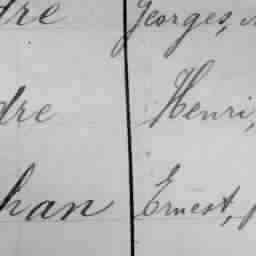 dre Georges,
dre Henri,
han Ernest,